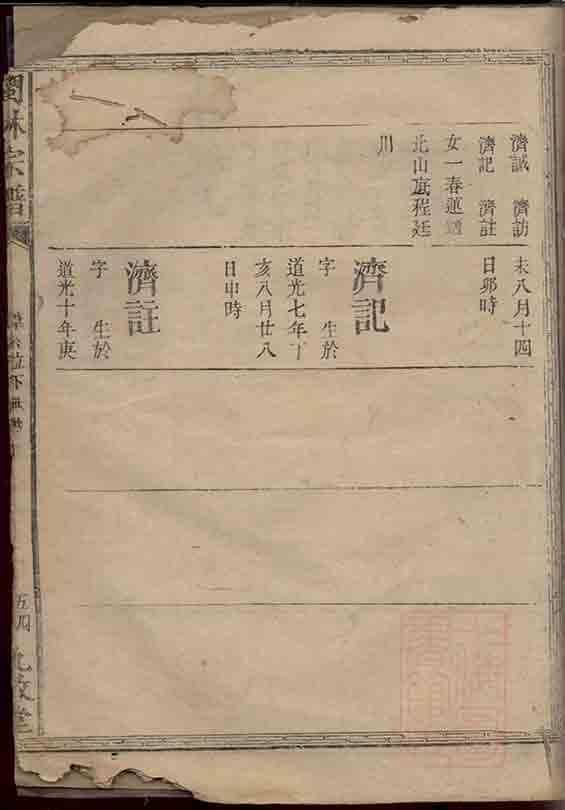 濟誠 濟訪
濟記 濟註
女一春蓮適
北山底程廷
川
未八月十四
日卯時
濟記
字 生於
道光七年丁
亥八月廿八
日申時
濟註
字 生於
道光十年庚
林宗譜
五四